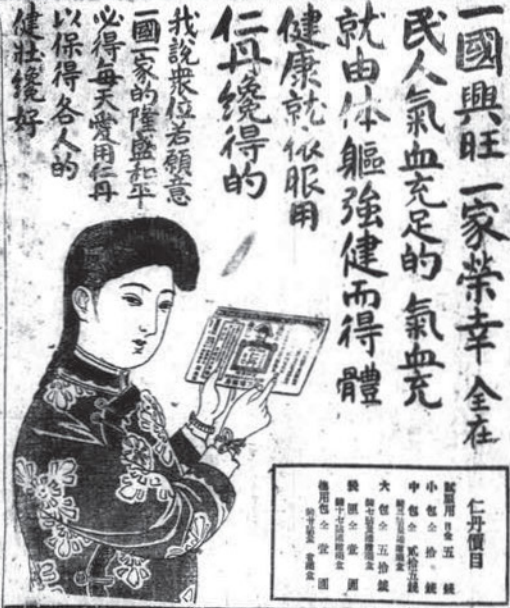 一國興旺 一家榮幸 全在
民人氣血充足的 氣血充
就由体軀強健而得 體
健康就依眼用
仁丹纔得的
我說衆位若願意
一國一家的隆盛和平
必得每天愛用仁丹
以保得各人的
健壯纔好
仁丹價目
試用 五錢
小包 拾錢
中包 貳拾五錢
大包 五拾錢
壹圓
德用包 壹圓